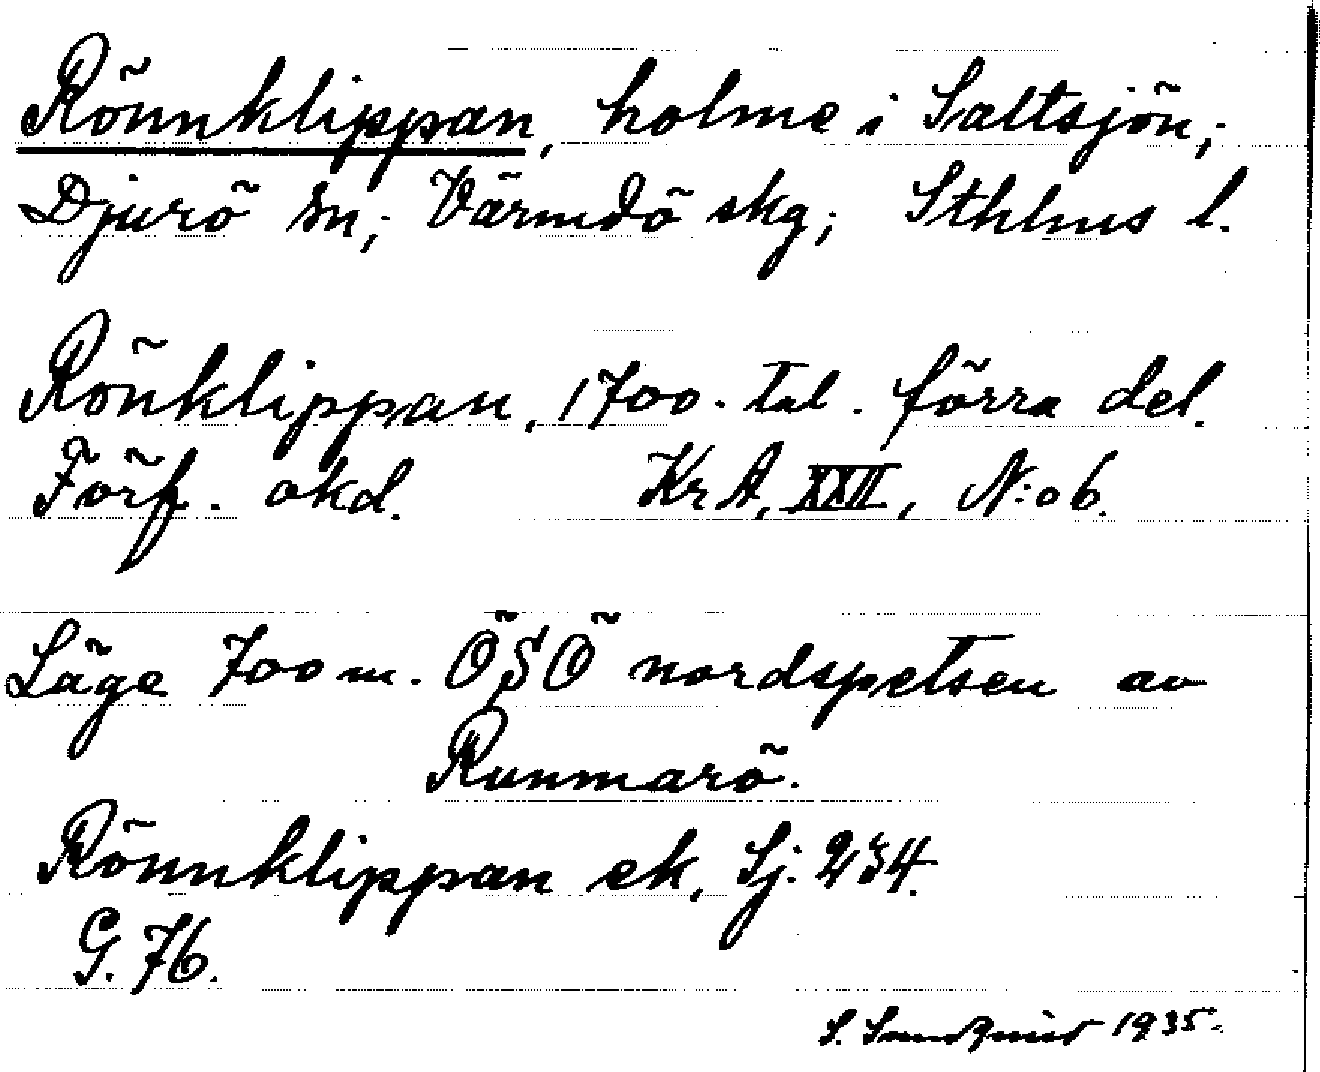 Rönnklippan, holme i Saltsjön,
Djurö sn, Värmdö skg; Sthlms l.
Rönklippan, 1700-tal. förra del.
Förf. okd. KrA, XXII, N:o 6.
Läge 700 m. ÖSÖ nordspetsen av
Runmarö.
Rönnklippan ek, Sj. 234.
G. 76.
S. Sundquist 1935.